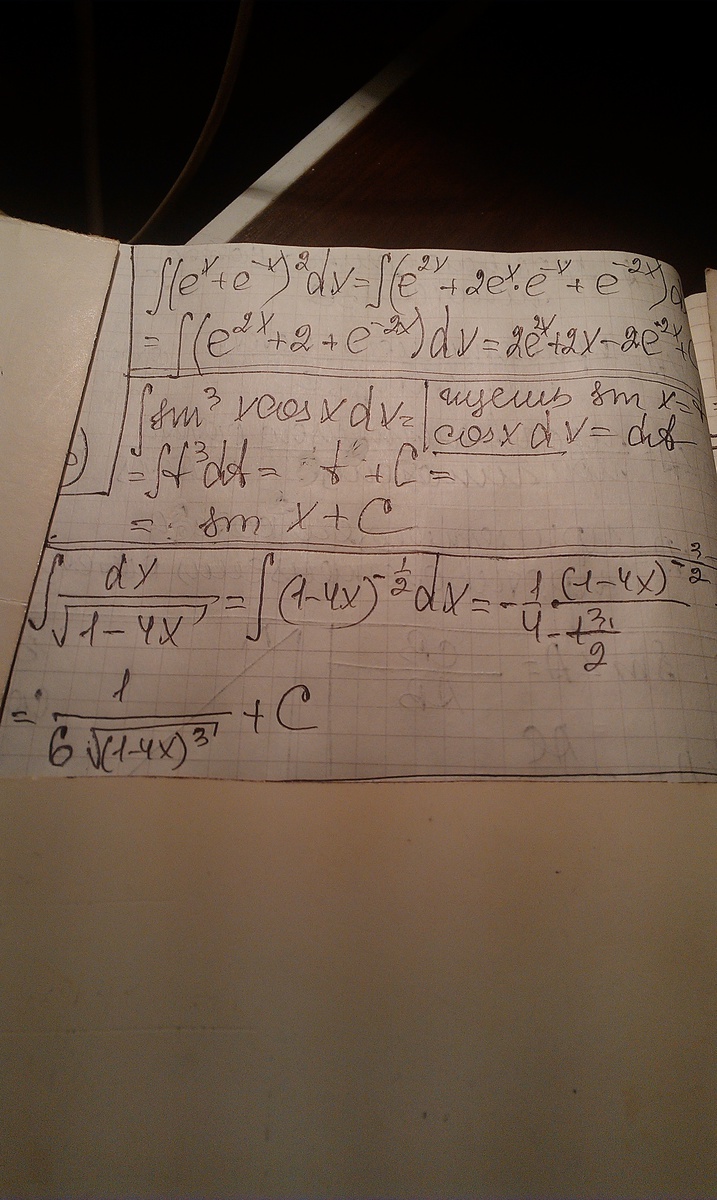 ∫(eˣ+e⁻ˣ)²dx=∫(e²ˣ+2eˣ·e⁻ˣ+e⁻²ˣ)d
=∫(e²ˣ+2+e⁻²ˣ)dx=2e²ˣ+2x-2e⁻²ˣ+
∫sin³xcosxdx=| sin x=
cosxdx=dt
=∫t³dt= t +C=
= sin x+C
∫dx/√(1-4x)=∫(1-4x)^(-1/2)dx=-1/4·(1-4x)^(-3/2)
=1/(6√(1-4x)³)+C